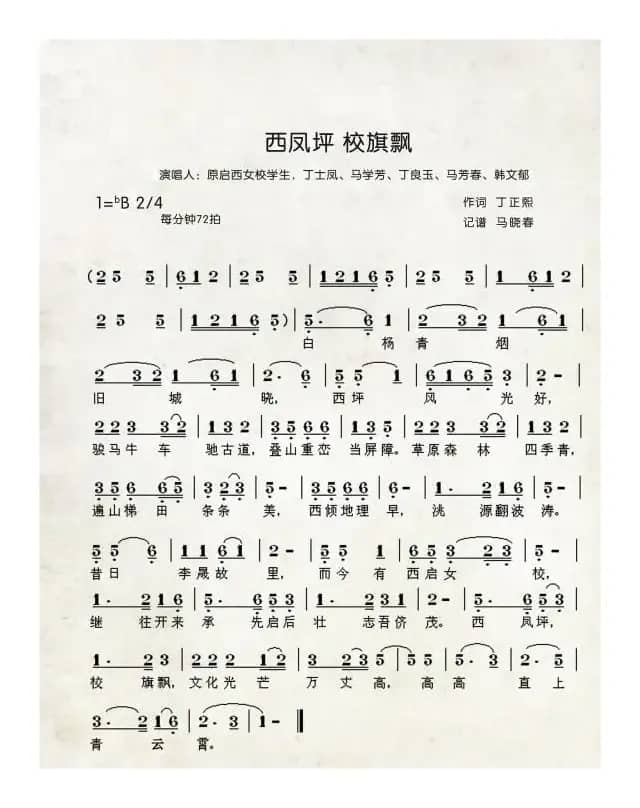 西凤坪 校旗飘
演唱人：原启西女校学生．丁士凤、马学芳、丁良玉、马芳春、韩文郁
1=ᵇB 2/4 作词 丁正熙
每分钟72拍 记谱 马晓春
(2 5 5 | 6 1 2 | 2 5 5 | 1 2 1 6 5 | 2 5 5 | 6 1 2 |
2 5 5 | 1 2 1 6 5) | 5· 6 1 | 2 3 2 1 6 |
白 杨 青 烟
2 3 2 1 6 1 | 2· 6 | 5 5 1 | 6 1 6 5 3 | 2 - |
旧 城 晓， 西坪 风 光 好，
2 2 3 3 2 | 1 3 2 | 3 5 6 6 | 1 3 2 | 2 2 3 3 2 | 1 3 2 |
骏马牛 车 驰古道，叠山重峦 当屏障。草原森 林 四季青，
3 5 5 6 5 | 3 2 3 | 5 - | 3 5 6 6 | 1 - | 1· 2 | 3 5 3 2 | 2 - |
遍山梯 田 条条 美， 西倾地理 早， 洮 源翻波 涛。
5 5 6 | 1 1 6 1 | 2 - | 5 5 1 | 6 5 3 2 3 | 2 - |
昔日 李晟故 里， 而今 有 西启女 校，
1· 2 3 | 5· 6 5 3 | 1· 2 3 1 | 2· 5 | 6 5 3 |
继 往开来 承 先启后 壮 志吾侪 茂。 西 凤坪，
1· 2 3 | 2 2 2 1 2 | 3 2 3 5 | 5· 5 | 5· 2 3 |
校 旗飘，文化光 芒 万 丈 高，高高 直上
3· 2 | 1 1 6 | 2· 3 | 1 - ‖
青 云 霄。